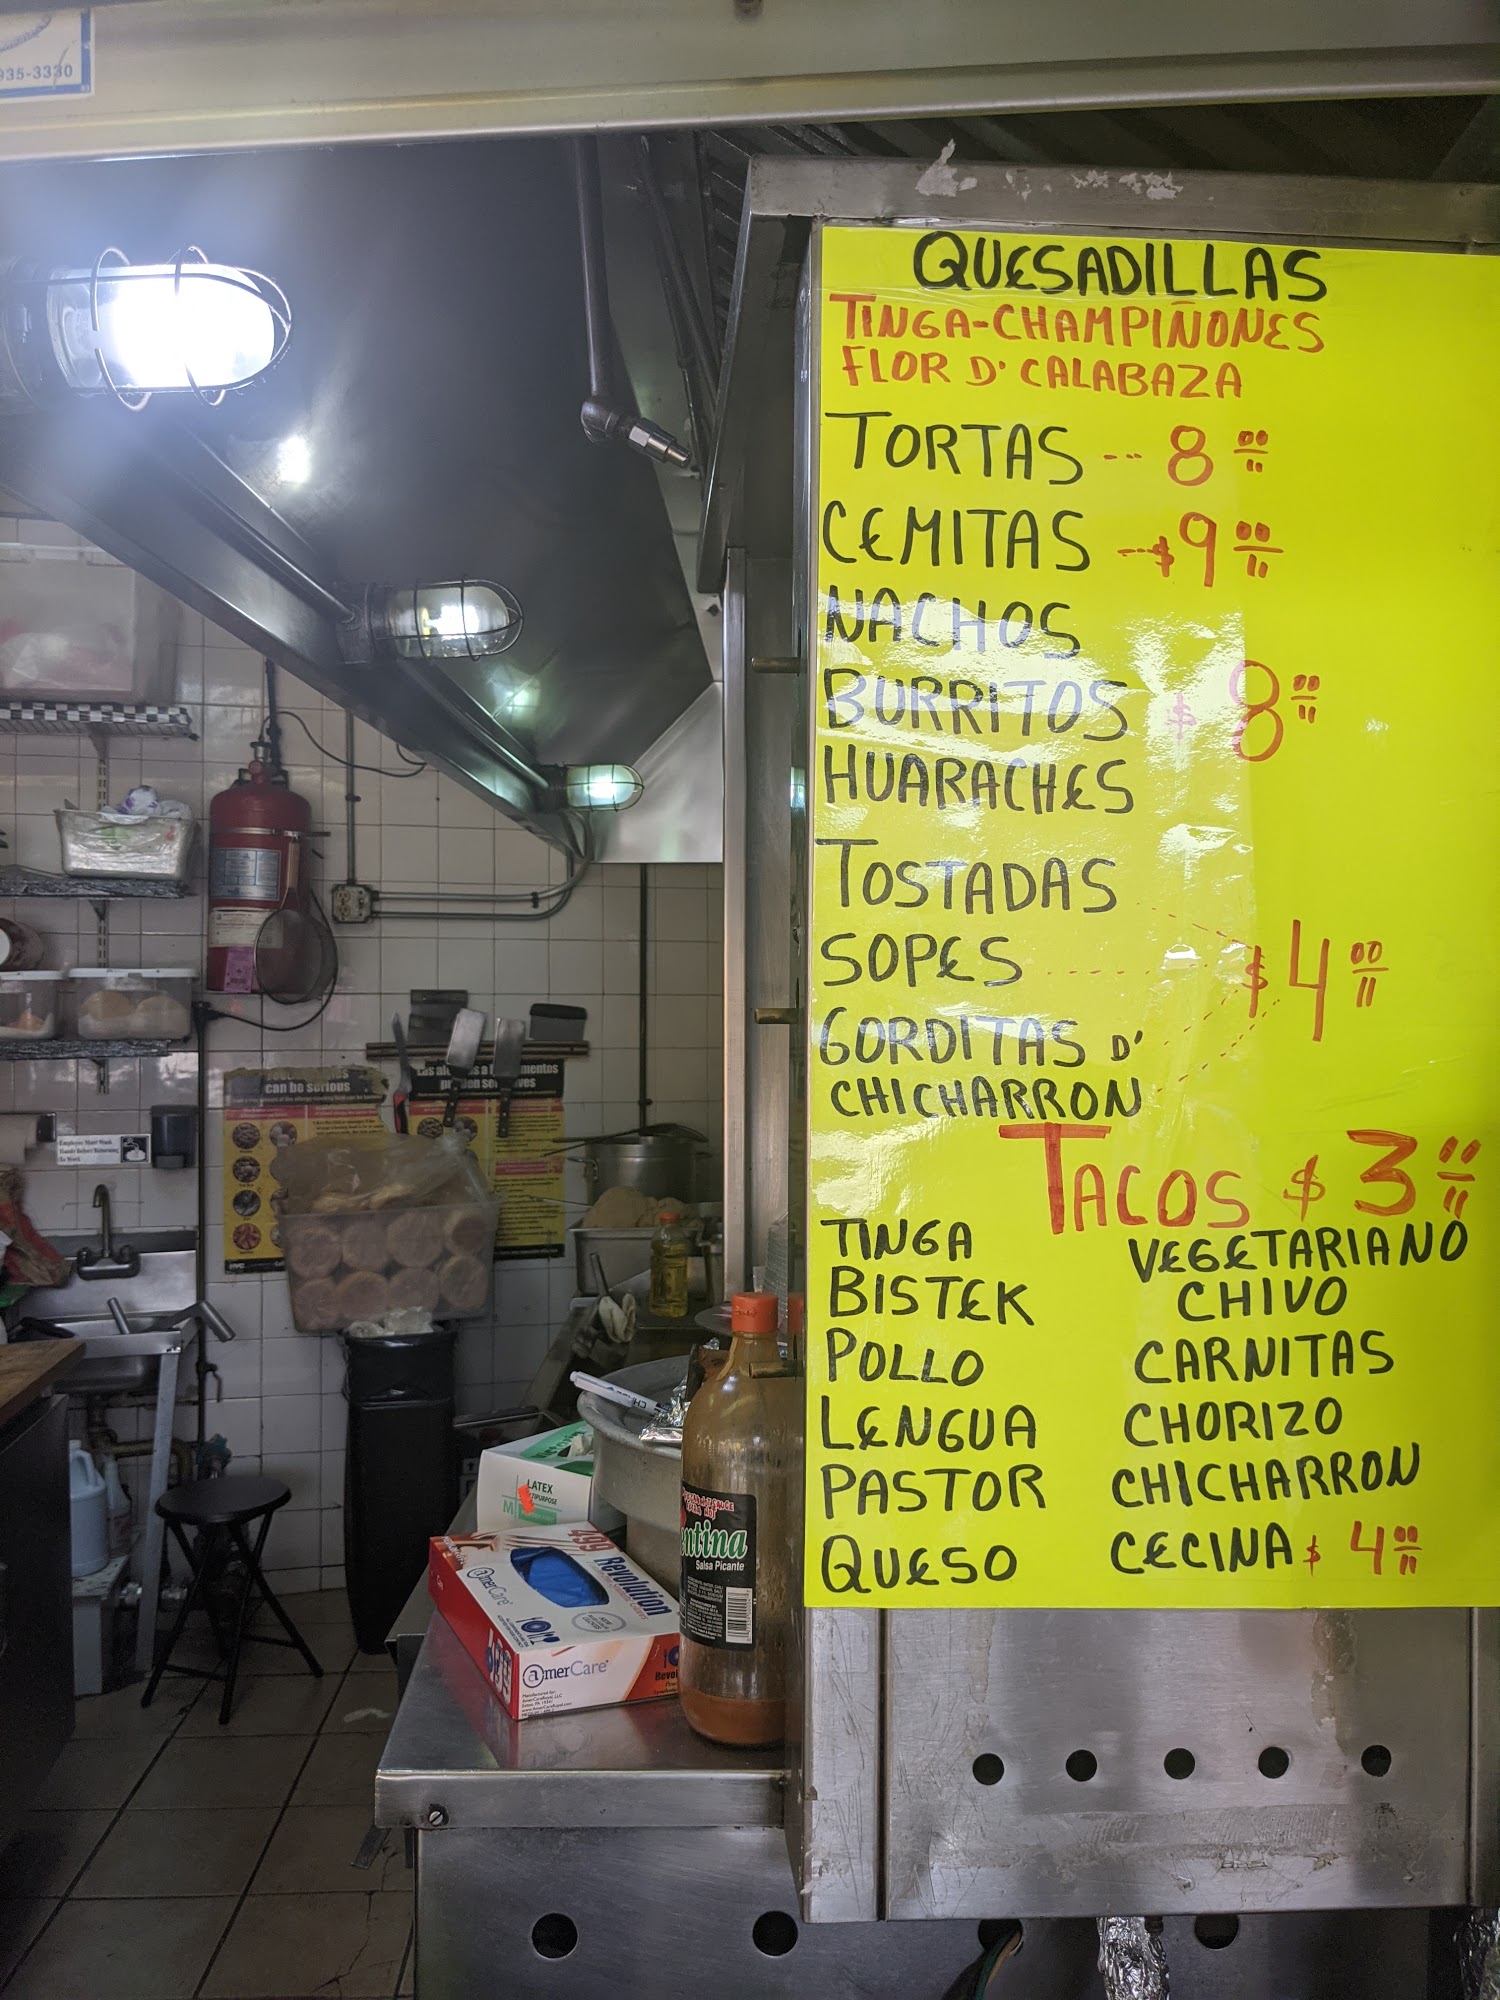 935-3330
QUESADILLAS
TINGA-CHAMPIÑONES
FLOR D' CALABAZA
TORTAS --- 8 00
CEMITAS ---$ 9 00
NACHOS
BURRITOS $ 8 00
HUARACHES
TOSTADAS
SOPES $ 4 00
GORDITAS D'
CHICHARRON
TACOS $ 3 00
TINGA VEGETARIANO
BISTEK CHIVO
POLLO CARNITAS
LENGUA CHORIZO
PASTOR CHICHARRON
QUESO CECINA $ 4 00
can be serious
Employees Must Wash
Hands Before Returning
To Work
LATEX
499 Revolution
AmerCare
AmerCare
Salsa Picante